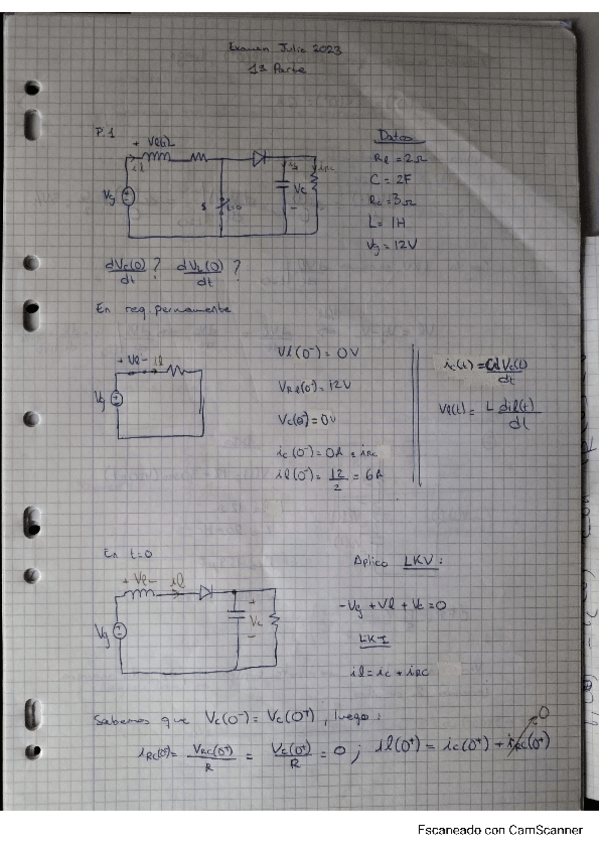 Examen Julio 2023
1ª Parte
P.1
+ Vl(t) -
il
Vg
Vc
iRC
Datos
Rl = 2Ω
C = 2F
Rc = 3Ω
L = 1H
Vg = 12V
dVc(0)/dt ? dVl(0)/dt ?
En reg. permanente
+ Vl - il
Vg
Vl(0⁻) = 0V
VRl(0⁻) = 12V
Vc(0⁻) = 0V
ic(0⁻) = 0A = iRC
il(0⁻) = 12/2 = 6A
ic(t) = C dVc(t)/dt
Vl(t) = L dil(t)/dt
En t=0
+ Vl - il
Vg
+ Vc -
Aplico LKV:
-Vg + Vl + Vc = 0
LKI
il = ic + iRC
Sabemos que Vc(0⁻) = Vc(0⁺), luego:
iRC(0⁺) = VRC(0⁺)/R = Vc(0⁺)/R = 0 ; il(0⁺) = ic(0⁺) + iRC(0⁺) 0
Escaneado con CamScanner